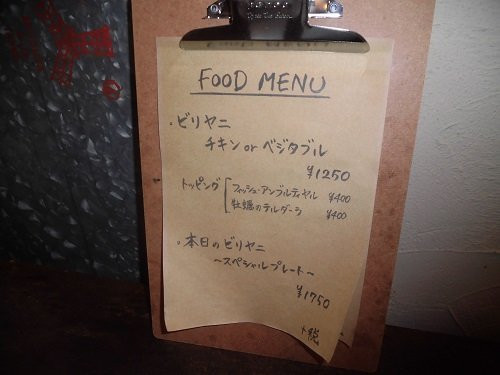 FOOD MENU
・ビリヤニ
チキン or ベジタブル
¥1250
トッピング
フィッシュ・アンブルティヤル ¥400
牡蠣のテルダーラ ¥400
・本日のビリヤニ
～スペシャルプレート～
¥1750
+税